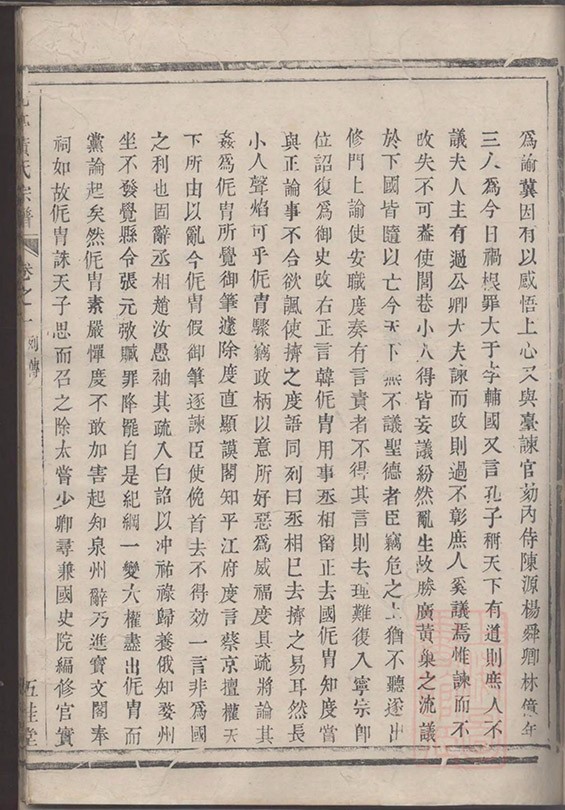 爲諭冀因有以感悟上心又與臺諫官劾內侍陳源楊舜卿林億年
三人爲今日禍根罪大于李輔國又言孔子稱天下有道則庶人不
議夫人主有過公卿大夫諫而改則過不彰庶人奚議焉惟諫而不
改失不可葢使閭巷小人得皆妄議紛然亂生故勝廣黃巢之流議
於下國皆隨以亡今天下無不議聖德者臣竊危之上猶不聽遂出
修門上諭使安職度奏有言責者不得其言則去理難復入寧宗卽
位詔復爲御史改右正言韓侂胄用事丞相留正去國侂胄知度嘗
與正論事不合欲諷使擠之度語同列曰丞相已去擠之易耳然長
小人聲焰可乎侂胄驟竊政柄以意所好惡爲威福度具疏將論其
姦爲侂胄所覺御筆遽除度直顯謨閣知平江府度言蔡京擅權天
下所由以亂今侂胄假御筆逐諫臣使俛首去不得効一言非爲國
之利也固辭丞相趙汝愚袖其疏入白詔以冲祐祿歸養俄知婺州
坐不發覺縣令張元弼贓罪降罷自是紀綱一變大權盡出侂胄而
黨論起矣然侂胄素嚴憚度不敢加害起知泉州辭乃進寶文閣奉
祠如故侂胄誅天子思而召之除太嘗少卿尋兼國史院編修官實
黃氏宗譜
卷之一
列傳
五桂堂